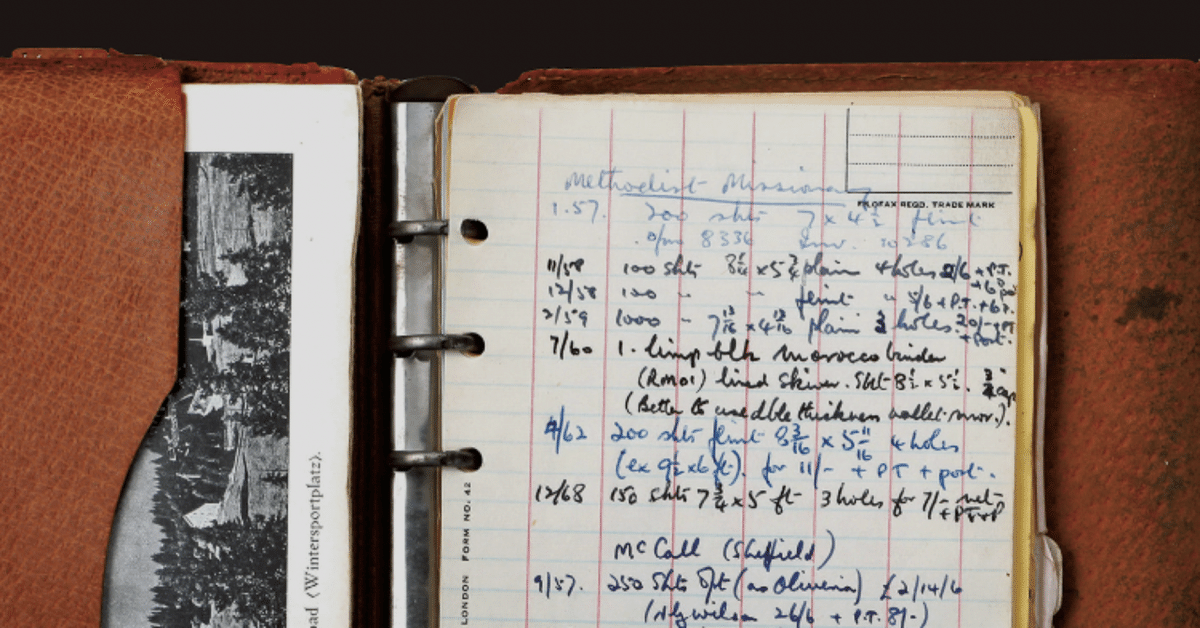 Methodist Missionary
FILOFAX REGD. TRADE MARK
1.57. 200 shts 7 x 4½ flint
8336 Inv. 10286
11/58 100 shts plain 4 holes + P.T.
12/58 100 " " flint " 5/6 + P.T. + 6d.
2/59 1000 " 7 13/16 x 4 13/16 plain 3 holes. 20/- + PT
+ post.
7/60 1. limp blk morocco binder
(RM01) lined skiver. Sht 8½ x 5½. ¾" cap
(Better to use dble thickness wallet mor.).
4/62 200 shts flint 8 3/16 x 5 11/16 4 holes
(ex 9½ x 6 ft). for 11/- + PT + post.
12/68 150 shts 7¾ x 5 ft 3 holes for 7/- net
McCall (Sheffield)
9/57. 250 shts (as Oliveira) £2/14/6
26/6 + P.T. 8/-)
LONDON FORM NO. 42
ad (Wintersportplatz).